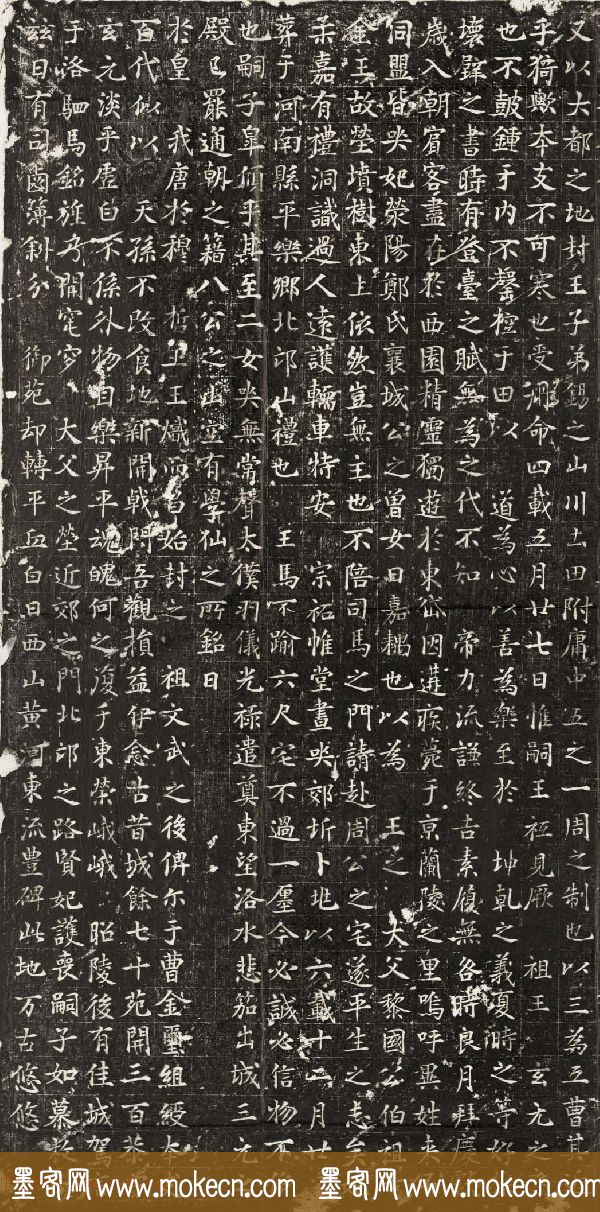 又以大都之地封王子弟錫之山川土田附庸中五之一周之制也以三為五曹其
乎猗歟本支不可寒也受命四載五月廿七日惟嗣王祗見厥祖王玄元之
也不鼓鍾于內不罄于田以道為心以善為樂至於坤乾之義夏時之等好
壞壁之書時有登臺之賦無為之代不知帝力流謙終吉素履無咎時良月拜慶
歲入朝賓客盡在於西園精靈獨遊於東岱因遘疾薨于京蘭陵之里嗚呼異姓來
同盟皆哭妃滎陽鄭氏襄城公之曾女曰嘉耦也以為王之大父黎國公伯祖
金王故塋墳樹東上依然豈無主也不陪司馬之門請赴周公之宅遂平生之志矣
柔嘉有禮洞識過人遠護轜車特安宗祏帷堂晝哭郊圻卜兆以六載十二月廿
葬于河南縣平樂鄉北邙山禮也王馬不踰六尺宅不過一廛今必誠必信物不
也嗣子皐傾乎其至二女哭無常聲太僕羽儀光祿遣奠東望洛水悲笳出城三元
殿已罷通朝之籍八公之山空有學仙之所銘曰
於皇我唐於穆哲王王熾而昌始封之祖文武之後俾尔于曹金璽組綬本
百代似以天孫不改食地新開戟門吾觀損益伊念古昔城餘七十苑開三百恭
玄元淡乎虛白不係外物自樂昇平魂魄何之復于東榮峨峨昭陵後有佳城駕
于洛駟馬銘旌兮開窀穸大父之塋近郊之門北邙之路賢妃護喪嗣子如慕於
茲日有司鹵簿斜分御苑却轉平丘白日西山黃河東流豊碑此地万古悠悠
墨客网 www.mokecn.com 墨客网 www.mokecn.com